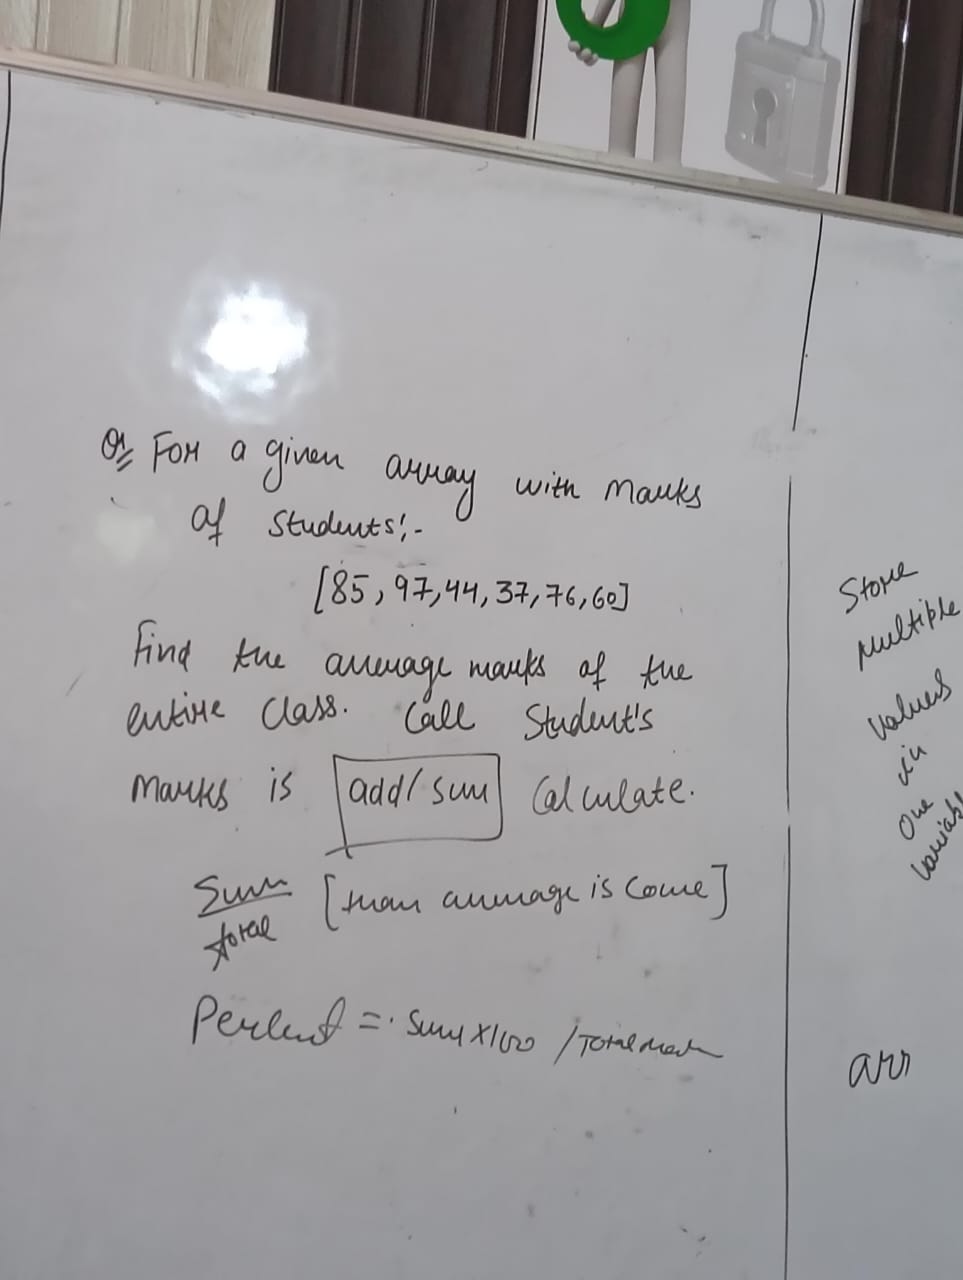 Q1 For a given array with marks
of students:-
[85, 97, 44, 37, 76, 60]
Find the average marks of the
entire class. Call Student's
Marks is add/sum Calculate.
Sum
total
[than average is come]
Percent = Sum x 100 / Total mark
Store
multiple
values
in
one
variabl
arr